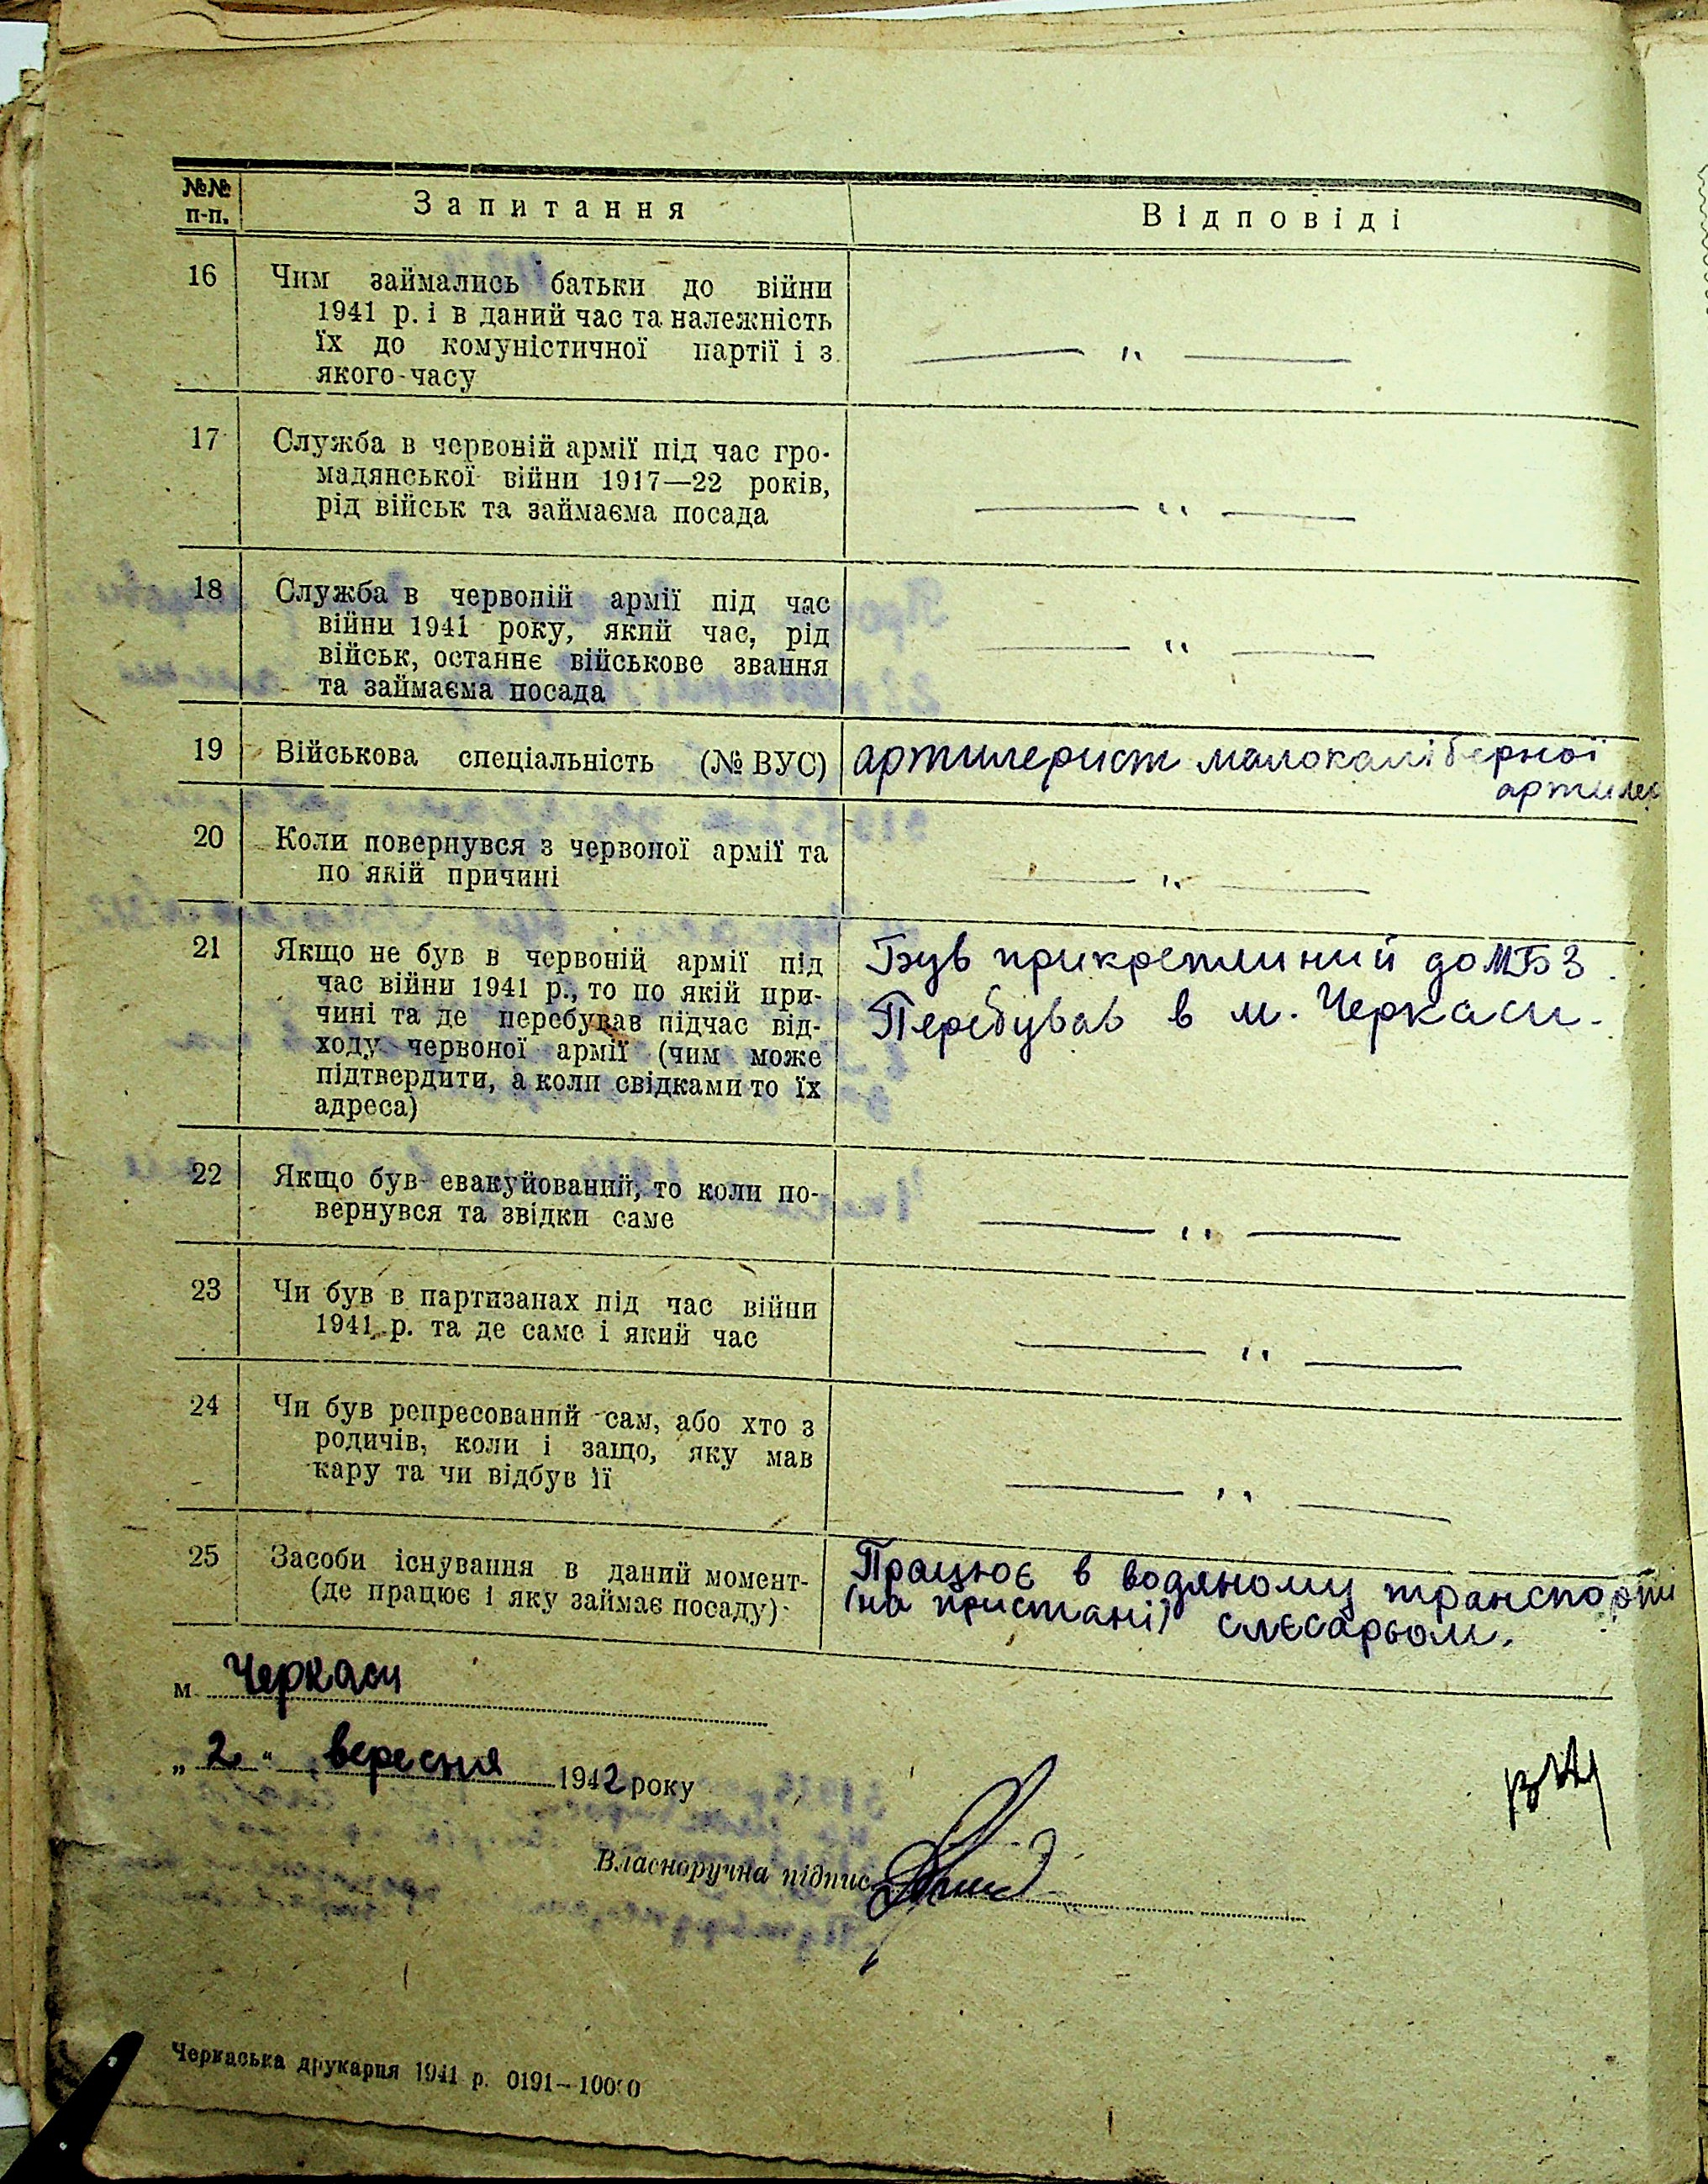 №№ п-п. Запитання Відповіді
16 Чим займались батьки до війни
1941 р. і в даний час та належність
їх до комуністичної партії і з
якого часу — „ —
17 Служба в червоній армії під час гро-
мадянської війни 1917—22 років,
рід військ та займаєма посада — „ —
18 Служба в червоній армії під час
війни 1941 року, який час, рід
військ, останнє військове звання
та займаєма посада — „ —
19 Військова спеціальність (№ ВУС) артилерист малокаліберної
артилер
20 Коли повернувся з червоної армії та
по якій причині — „ —
21 Якщо не був в червоній армії під
час війни 1941 р., то по якій при-
чині та де перебував підчас від-
ходу червоної армії (чим може
підтвердити, а коли свідками то їх
адреса)
Був прикреплиний до МБЗ.
Перебував в м. Черкаси.
22 Якщо був евакуйований, то коли по-
вернувся та звідки саме — „ —
23 Чи був в партизанах під час війни
1941 р. та де саме і який час — „ —
24 Чи був репресований сам, або хто з
родичів, коли і защо, яку мав
кару та чи відбув її — „ —
25 Засоби існування в даний момент
(де працює і яку займає посаду)
Працює в водяному транспорти
(на пристані) слєсарьом.
м. Черкаси
„2“ вересня 1942 року
Власноручна підпис
Черкаська друкарня 1941 р. 0191—10000